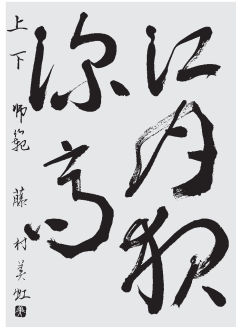 江月
深高
上下 師範 藤村美虹